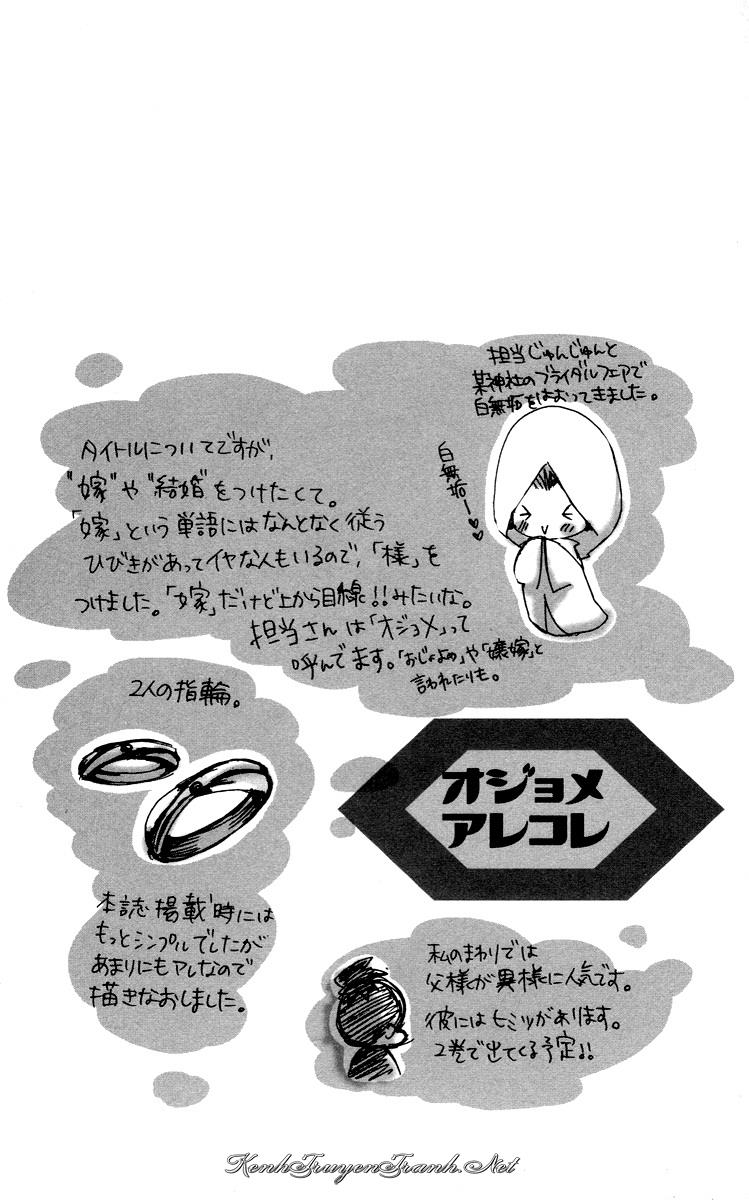 担当じゅんじゅんと
某神社のブライダルフェアで
白無垢をはおってきました。
白無垢ー♥♥
タイトルについてですが、
"嫁"や"結婚"をつけたくて。
「嫁」という単語にはなんとなく従う
ひびきがあってイヤな人もいるので、「様」を
つけました。「嫁」だけど上から目線!!みたいな。
担当さんは「オジョメ」って
呼んでます。「おじょよめ」や「嬢嫁」と
言われたりも。
2人の指輪。
オジョメ
アレコレ
本誌掲載時には
もっとシンプルでしたが
あまりにもアレなので
描きなおしました。
私のまわりでは
父様が異様に人気です。
彼にはヒミツがあります。
2巻で出てくる予定!!
KenhTruyenTranh.Net